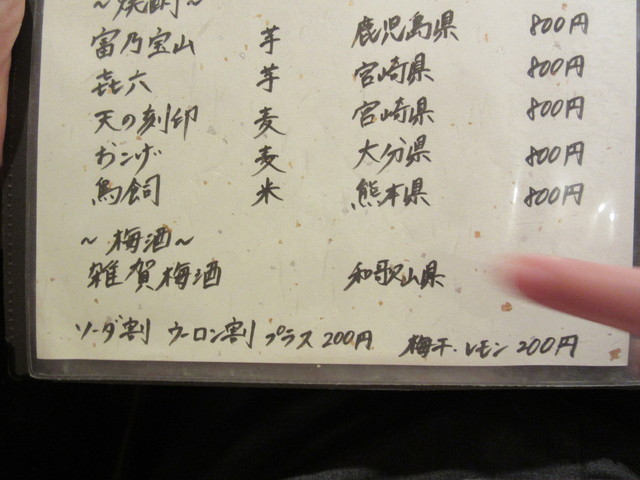 ～焼酎～
富乃宝山 芋 鹿児島県 800円
㐂六 芋 宮崎県 800円
天の刻印 麦 宮崎県 800円
おこげ 麦 大分県 800円
鳥飼 米 熊本県 800円
～梅酒～
雑賀梅酒 和歌山県
ソーダ割 ウーロン割 プラス 200円 梅干・レモン 200円